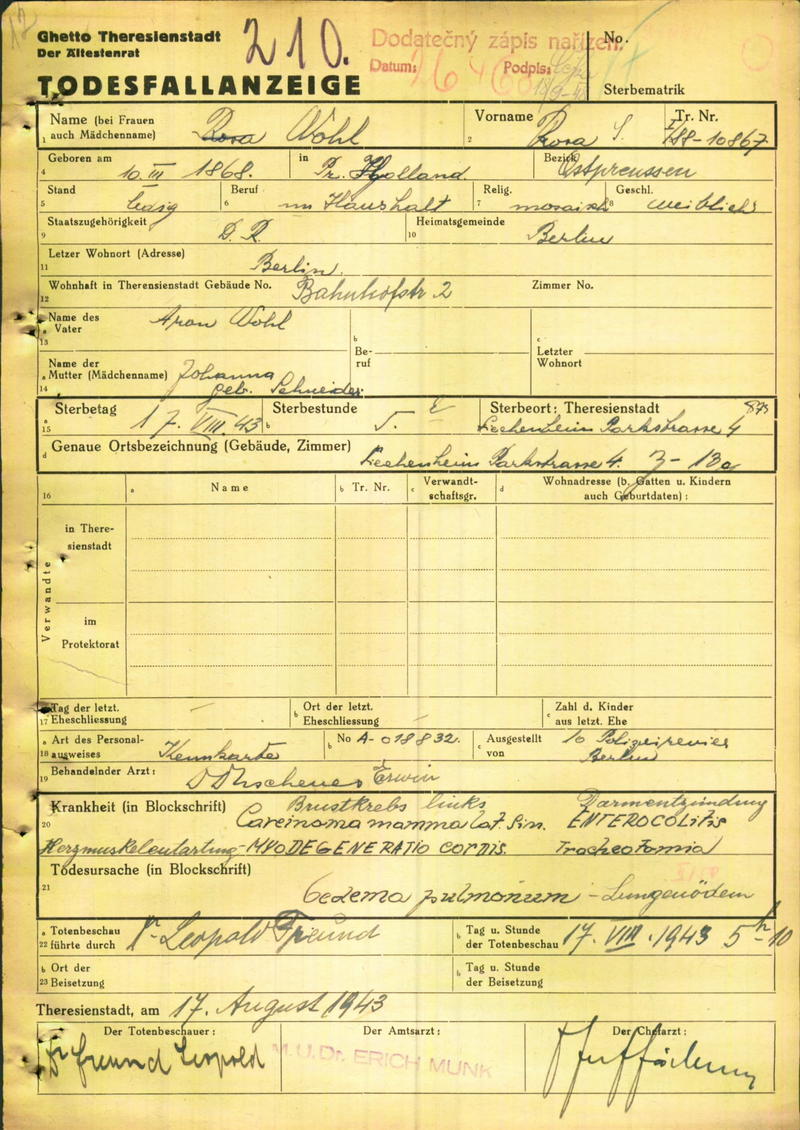 Ghetto Theresienstadt
Der Ältestenrat
TODESFALLANZEIGE
210.
Dodatečný zápis nařízen.
Datum:
Podpis:
No.
Sterbematrik
Name (bei Frauen auch Mädchenname) Wohl
1
Vorname Rosa S.
2
Tr. Nr. I/88-10867
Geboren am 10. III 1868.
4
in Pr. Holland
Bezirk Ostpreussen
Stand ledig
5
Beruf im Haushalt
6
Relig. mosaisch
7
Geschl. weiblich
8
Staatszugehörigkeit D. R.
9
Heimatsgemeinde Berlin
10
Letzer Wohnort (Adresse) Berlin.
11
Wohnhaft in Theresienstadt Gebäude No. Bahnhofstr 2
12
Zimmer No.
a Name des Vater Aron Wohl
13
b Beruf
c Letzter Wohnort
Name der
a Mutter (Mädchenname) Johanna geb. Schneider
14
Sterbetag 17. VIII 43
a 15
Sterbestunde 5.
b
Sterbeort: Theresienstadt
c
Siechenheim Parkstrasse 4
Genaue Ortsbezeichnung (Gebäude, Zimmer)
d
Siechenheim Parkstrasse 4. Z-13a
16
a Name
b Tr. Nr.
c Verwandtschaftsgr.
d Wohnadresse (b. Gatten u. Kindern auch Geburtdaten) :
Verwandte
in Theresienstadt
im Protektorat
a Tag der letzt.
17 Eheschliessung –
b Ort der letzt. Eheschliessung –
c Zahl d. Kinder aus letzt. Ehe
a Art des Personalausweises Kennkarte
18
b No A-018832.
c Ausgestellt von 10 Polizeirevier Berlin
Behandelnder Arzt: Erwin
19
Krankheit (in Blockschrift)
20
Brustkrebs links Darmentzündung
Carcinoma mamma lat. sin. ENTEROCOLITIS
Herzmuskelentartung - MYODEGENERATIO CORDIS.
Todesursache (in Blockschrift)
21
Oedema pulmonum - Lungenödem
a Totenbeschau
22 führte durch Dr Leopold Freund
b Tag u. Stunde der Totenbeschau 17. VIII. 1943 5h 10
b Ort der
23 Beisetzung
b Tag u. Stunde der Beisetzung
Theresienstadt, am 17. August 1943
Der Totenbeschauer :
Dr Freund Leopold
Der Amtsarzt :
M.U.Dr. ERICH MUNK
Der Chefarzt :